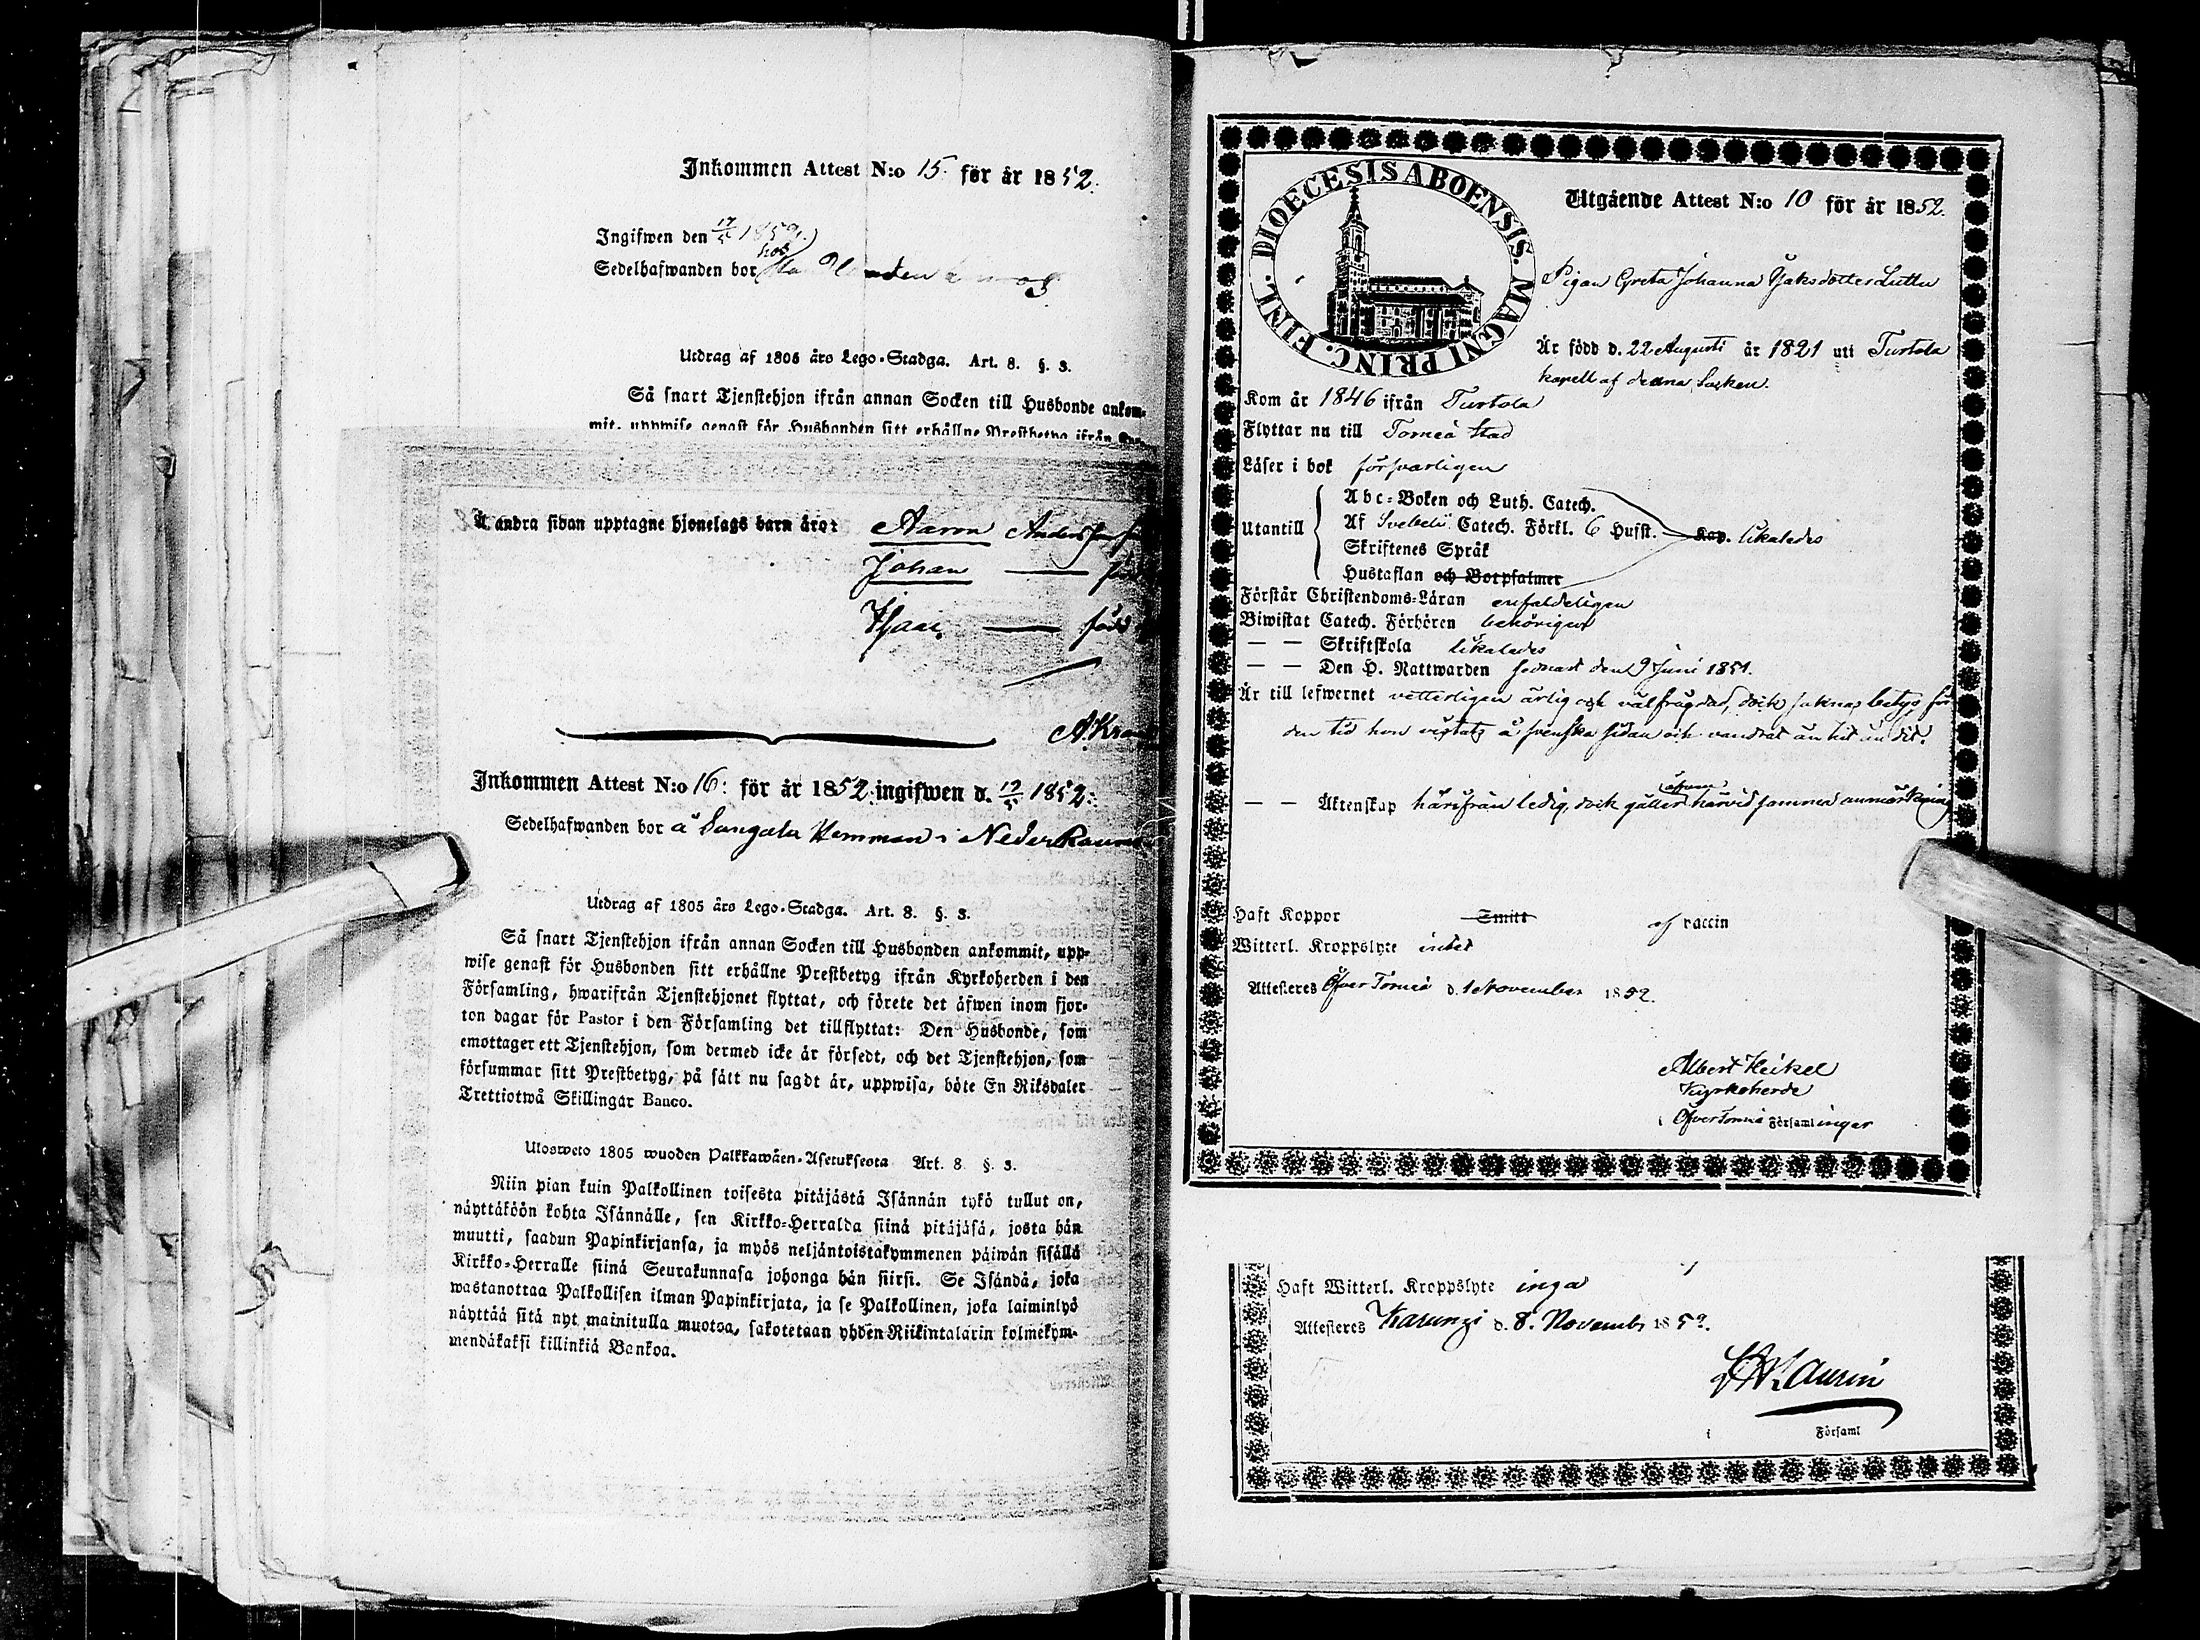 Inkommen Attest N:o 15. för år 1852.
Ingifwen den 17/5 1852.
Sedelhafwanden bor hos
Utdrag af 1805 års Lego-Stadga. Art. 8. §. 3.
Så snart Tjenstehjon ifrån annan Socken till Husbonde ankom-
mit, uppwise genast för Husbonden sitt erhållne Prestbetyg ifrån
Å andra sidan upptagne hjonelags barn äro: Aaron Andersson
Johan — född
Isaac — född
A. Kra
Inkommen Attest N:o 16: för år 1852: ingifwen d. 17/5 1852:
Sedelhafwanden bor å Hemman i Neder
Utdrag af 1805 års Lego-Stadga. Art. 8. §. 3.
Så snart Tjenstehjon ifrån annan Socken till Husbonden ankommit, upp-
wise genast för Husbonden sitt erhållne Prestbetyg ifrån Kyrkoherden i den
Församling, hwarifrån Tjenstehjonet flyttat, och förete det äfwen inom fjor-
ton dagar för Pastor i den Församling det tillflyttat: Den Husbonde, som
emottager ett Tjenstehjon, som dermed icke är försedt, och det Tjenstehjon, som
försummar sitt Prestbetyg, på sätt nu sagdt är, uppwisa, böte En Riksdaler
Trettiotwå Skillingar Banco.
Ulosweto 1805 wuoden Palkkawäen-Asetuksesta Art. 8 §. 3.
Niin pian kuin Palkollinen toisesta pitäjästä Isännän tykö tullut on,
näyttäköön kohta Isännälle, sen Kirkko-Herralda siinä pitäjäsä, josta hän
muutti, saadun Papinkirjansa, ja myös neljäntoistakymmenen päiwän sisällä
Kirkko-Herralle siinä Seurakunnasa johonga hän siirsi. Se Isändä, joka
wastanottaa Palkollisen ilman Papinkirjata, ja se Palkollinen, joka laiminlyö
näyttää sitä nyt mainitulla muotoa, sakotetaan yhden Riikintalarin kolmekym-
mendäkaksi killinkiä Bankoa.
DIOECESIS ABOENSIS. MAGNI PRINC. FINL.
Utgående Attest N:o 10 för år 1852.
Pigan Greta Johanna Isaksdotter Luttu
Är född d. 22 Augusti år 1821 uti Turtola
kapell af denna Socken.
Kom år 1846 ifrån Turtola
Flyttar nu till Torneå stad
Läser i bok försvarligen
Utantill { Abc-Boken och Luth. Catech.
Af Svebelii Catech. Förkl. 6 Hufst. Kap. likaledes
Skriftenes Språk
Hustaflan och Botpsalmer
Förstår Christendoms-Läran enfaldeligen
Biwistat Catech. Förhören behörigen
— — Skriftskola likaledes
— — Den H. Nattwarden senast den 9 Juni 1851.
Är till lefwernet vetterligen ärlig och välfrägdad, dock saknas betyg för
den tid hon vistats å svenska sidan och vandrat än hit än dit.
— — Äktenskap härifrån ledig, dock gäller äfven härvid samma anmärkning
Haft Koppor Smitt af vaccin
Witterl. Kroppslyte intet
Attesteres Öfver Torneå d. 1 November 1852.
Albert Heikel
Kyrkoherde
i Öfver Torneå Församlingar
Haft Witterl. Kroppslyte inga
Attesteres Karungi d. 8. November 1852.
Laurin
i Församl